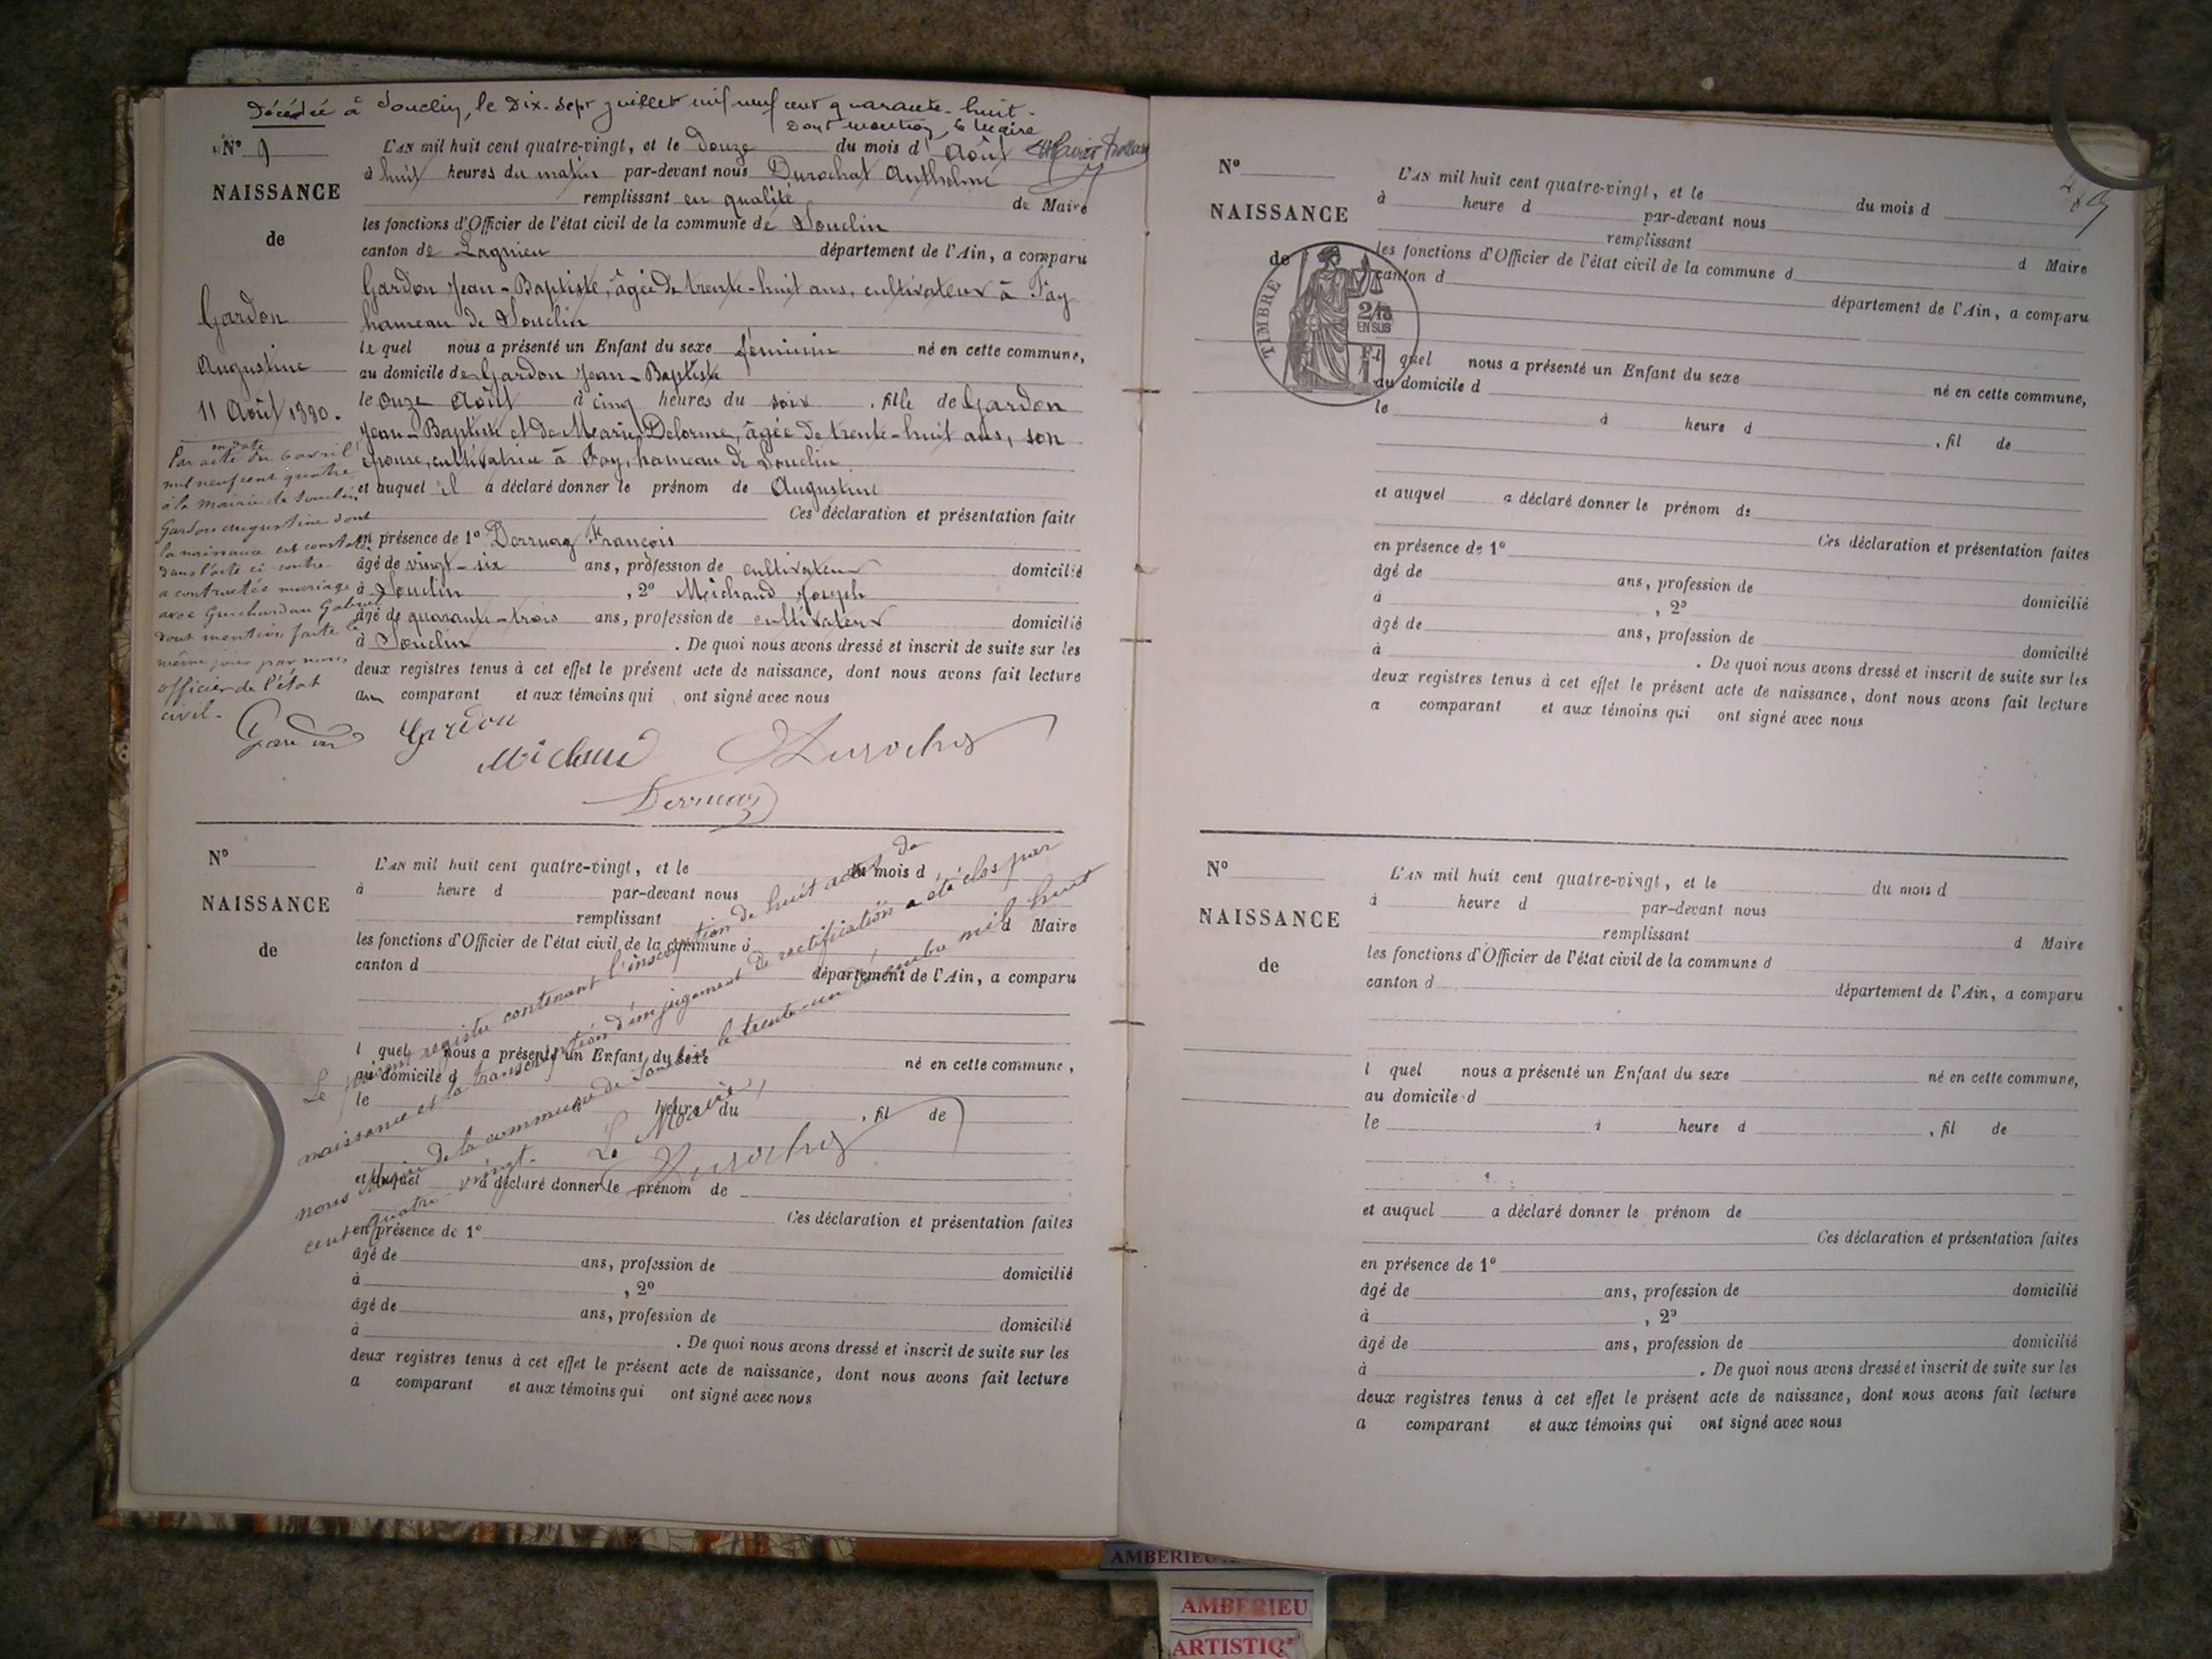 Décédée à Souclin, le Dix-Sept juillet mil neuf cent quarante-huit.
Dont mention, le Maire
N° 9
NAISSANCE
de
Gardon
Augustine
11 Août 1880.
L'AN mil huit cent quatre-vingt, et le douze du mois d' Août
à huit heures du matin par-devant nous Durochat Anthelme
remplissant en qualité de Maire
les fonctions d'Officier de l'état civil de la commune de Souclin
canton de Lagnieu département de l'Ain, a comparu
Gardon Jean-Baptiste, âgé de trente-huit ans, cultivateur à Fay
hameau de Souclin
lequel nous a présenté un Enfant du sexe féminin né en cette commune,
au domicile de Gardon Jean-Baptiste
le onze Août à cinq heures du soir, fille de Gardon
Jean-Baptiste et de Marie Delorme, âgée de trente-huit ans, son
épouse, cultivatrice à Fay, hameau de Souclin
et auquel il a déclaré donner le prénom de Augustine
Ces déclaration et présentation faite
en présence de 1° Derruaz François
âgé de vingt-six ans, profession de cultivateur domicilié
à Souclin, 2° Michaud Joseph
âgé de quarante-trois ans, profession de cultivateur domicilié
à Souclin. De quoi nous avons dressé et inscrit de suite sur les
deux registres tenus à cet effet le présent acte de naissance, dont nous avons fait lecture
au comparant et aux témoins qui ont signé avec nous
Par acte en date du 6 avril
mil neuf cent quatre
à la mairie de Souclin
Gardon Augustine dont
la naissance est constatée
dans l'acte ci-contre
a contracté mariage
avec Guichardan Gabriel
dont mention faite le
même jour par nous
officier de l'état
civil.
Gardon Gardon
Michaud Durochat
Derruaz
N°
NAISSANCE
de
L'AN mil huit cent quatre-vingt, et le du mois d
à heure d par-devant nous
remplissant d Maire
les fonctions d'Officier de l'état civil de la commune d
canton d département de l'Ain, a comparu
l quel nous a présenté un Enfant du sexe né en cette commune,
au domicile d
le heure du , fil de
et auquel a déclaré donner le prénom de
Ces déclaration et présentation faites
en présence de 1°
âgé de ans, profession de domicilié
à , 2°
âgé de ans, profession de domicilié
à . De quoi nous avons dressé et inscrit de suite sur les
deux registres tenus à cet effet le présent acte de naissance, dont nous avons fait lecture
a comparant et aux témoins qui ont signé avec nous
Le présent registre contenant l'inscription de huit actes de
naissance et la transcription d'un jugement de rectification a été clos par
nous Maire de la commune de Souclin le trente-un décembre mil huit
cent quatre-vingt.
Le Maire,
Durochat
N°
NAISSANCE
de
L'AN mil huit cent quatre-vingt, et le du mois d
à heure d par-devant nous
remplissant d Maire
les fonctions d'Officier de l'état civil de la commune d
canton d département de l'Ain, a comparu
quel nous a présenté un Enfant du sexe né en cette commune,
au domicile d
le à heure d , fil de
et auquel a déclaré donner le prénom de
Ces déclaration et présentation faites
en présence de 1°
âgé de ans, profession de domicilié
à , 2°
âgé de ans, profession de domicilié
à . De quoi nous avons dressé et inscrit de suite sur les
deux registres tenus à cet effet le présent acte de naissance, dont nous avons fait lecture
a comparant et aux témoins qui ont signé avec nous
TIMBRE
EN SUS
N°
NAISSANCE
de
L'AN mil huit cent quatre-vingt, et le du mois d
à heure d par-devant nous
remplissant d Maire
les fonctions d'Officier de l'état civil de la commune d
canton d département de l'Ain, a comparu
l quel nous a présenté un Enfant du sexe né en cette commune,
au domicile d
le à heure d , fil de
et auquel a déclaré donner le prénom de
Ces déclaration et présentation faites
en présence de 1°
âgé de ans, profession de domicilié
à , 2°
âgé de ans, profession de domicilié
à . De quoi nous avons dressé et inscrit de suite sur les
deux registres tenus à cet effet le présent acte de naissance, dont nous avons fait lecture
a comparant et aux témoins qui ont signé avec nous
AMBERIEU
AMBERIEU
ARTISTIQ